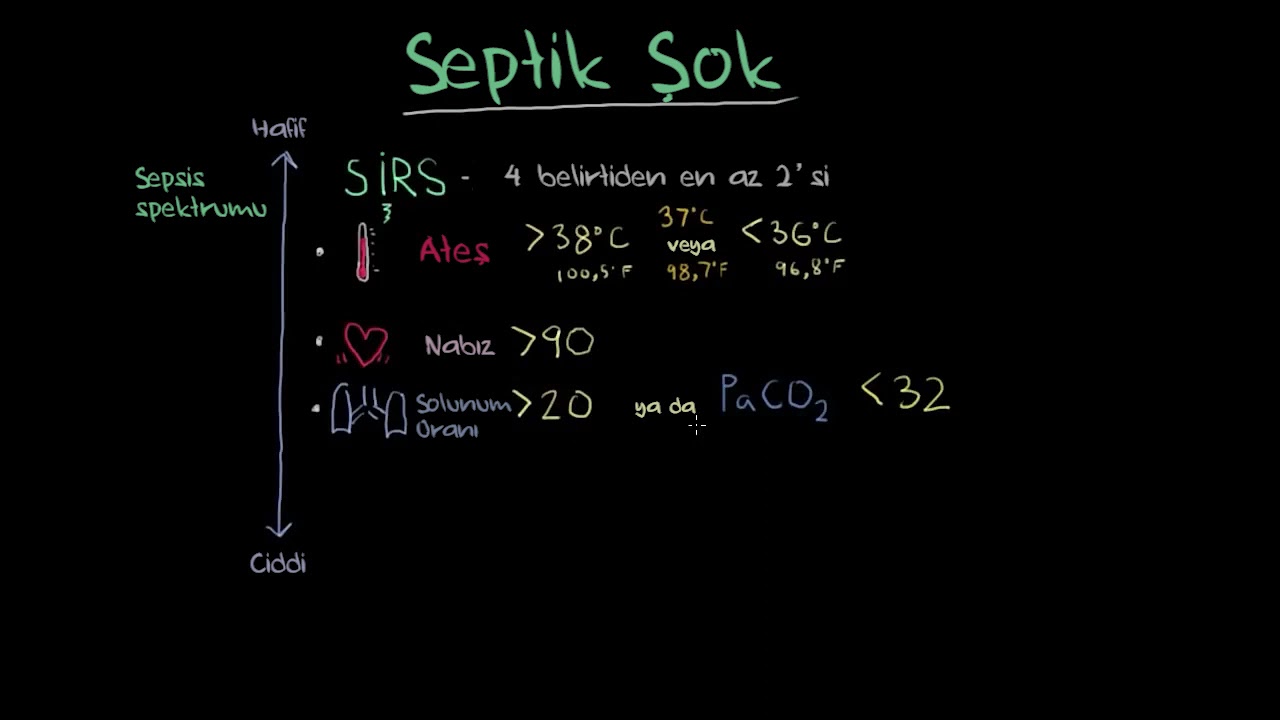 Septik Şok
Hafif
Sepsis
spektrumu
SİRS - 4 belirtiden en az 2'si
Ateş >38°C 37°C veya <36°C
100,5°F 98,7°F 96,8°F
Nabız >90
Solunum >20 ya da PaCO₂ <32
Oranı
Ciddi